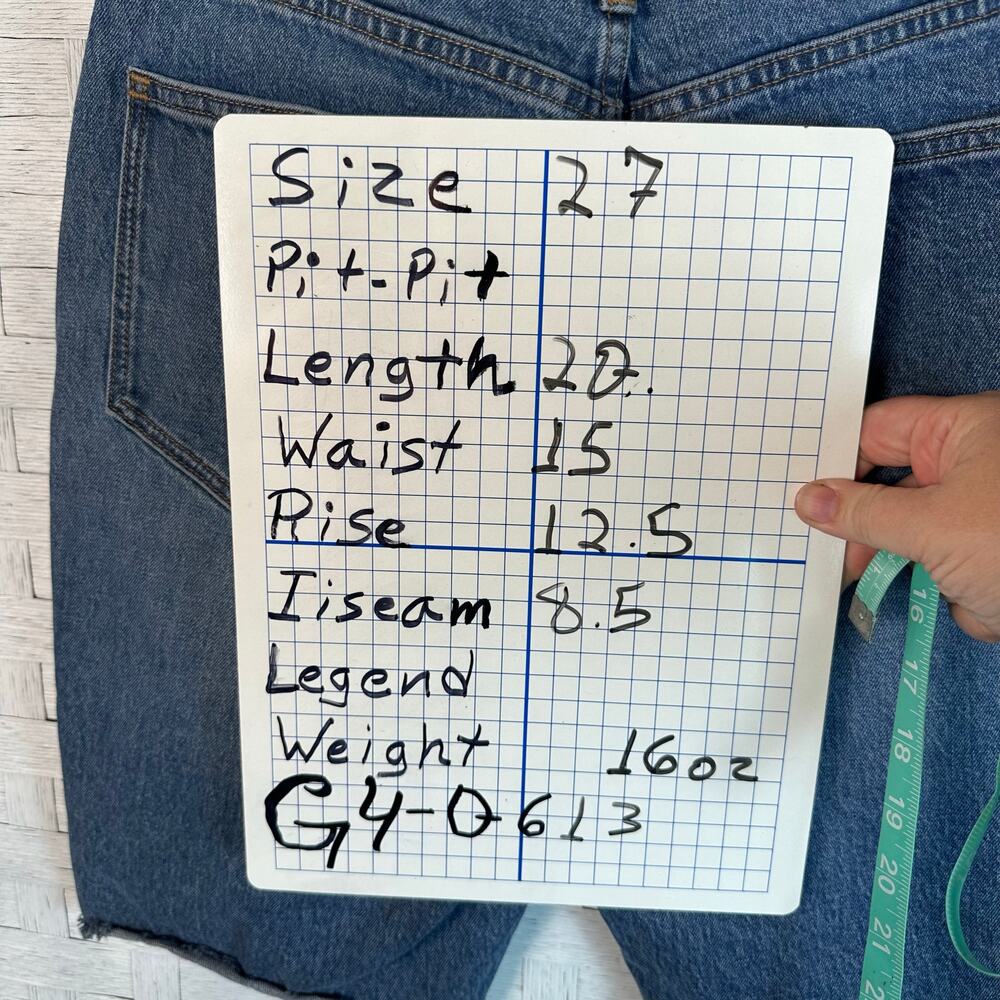 Size 27
Pit-Pit
Length 20.
Waist 15
Rise 12.5
Iiseam 8.5
Legend
Weight 16oz
G4-0613
16
17
18
19
20
21